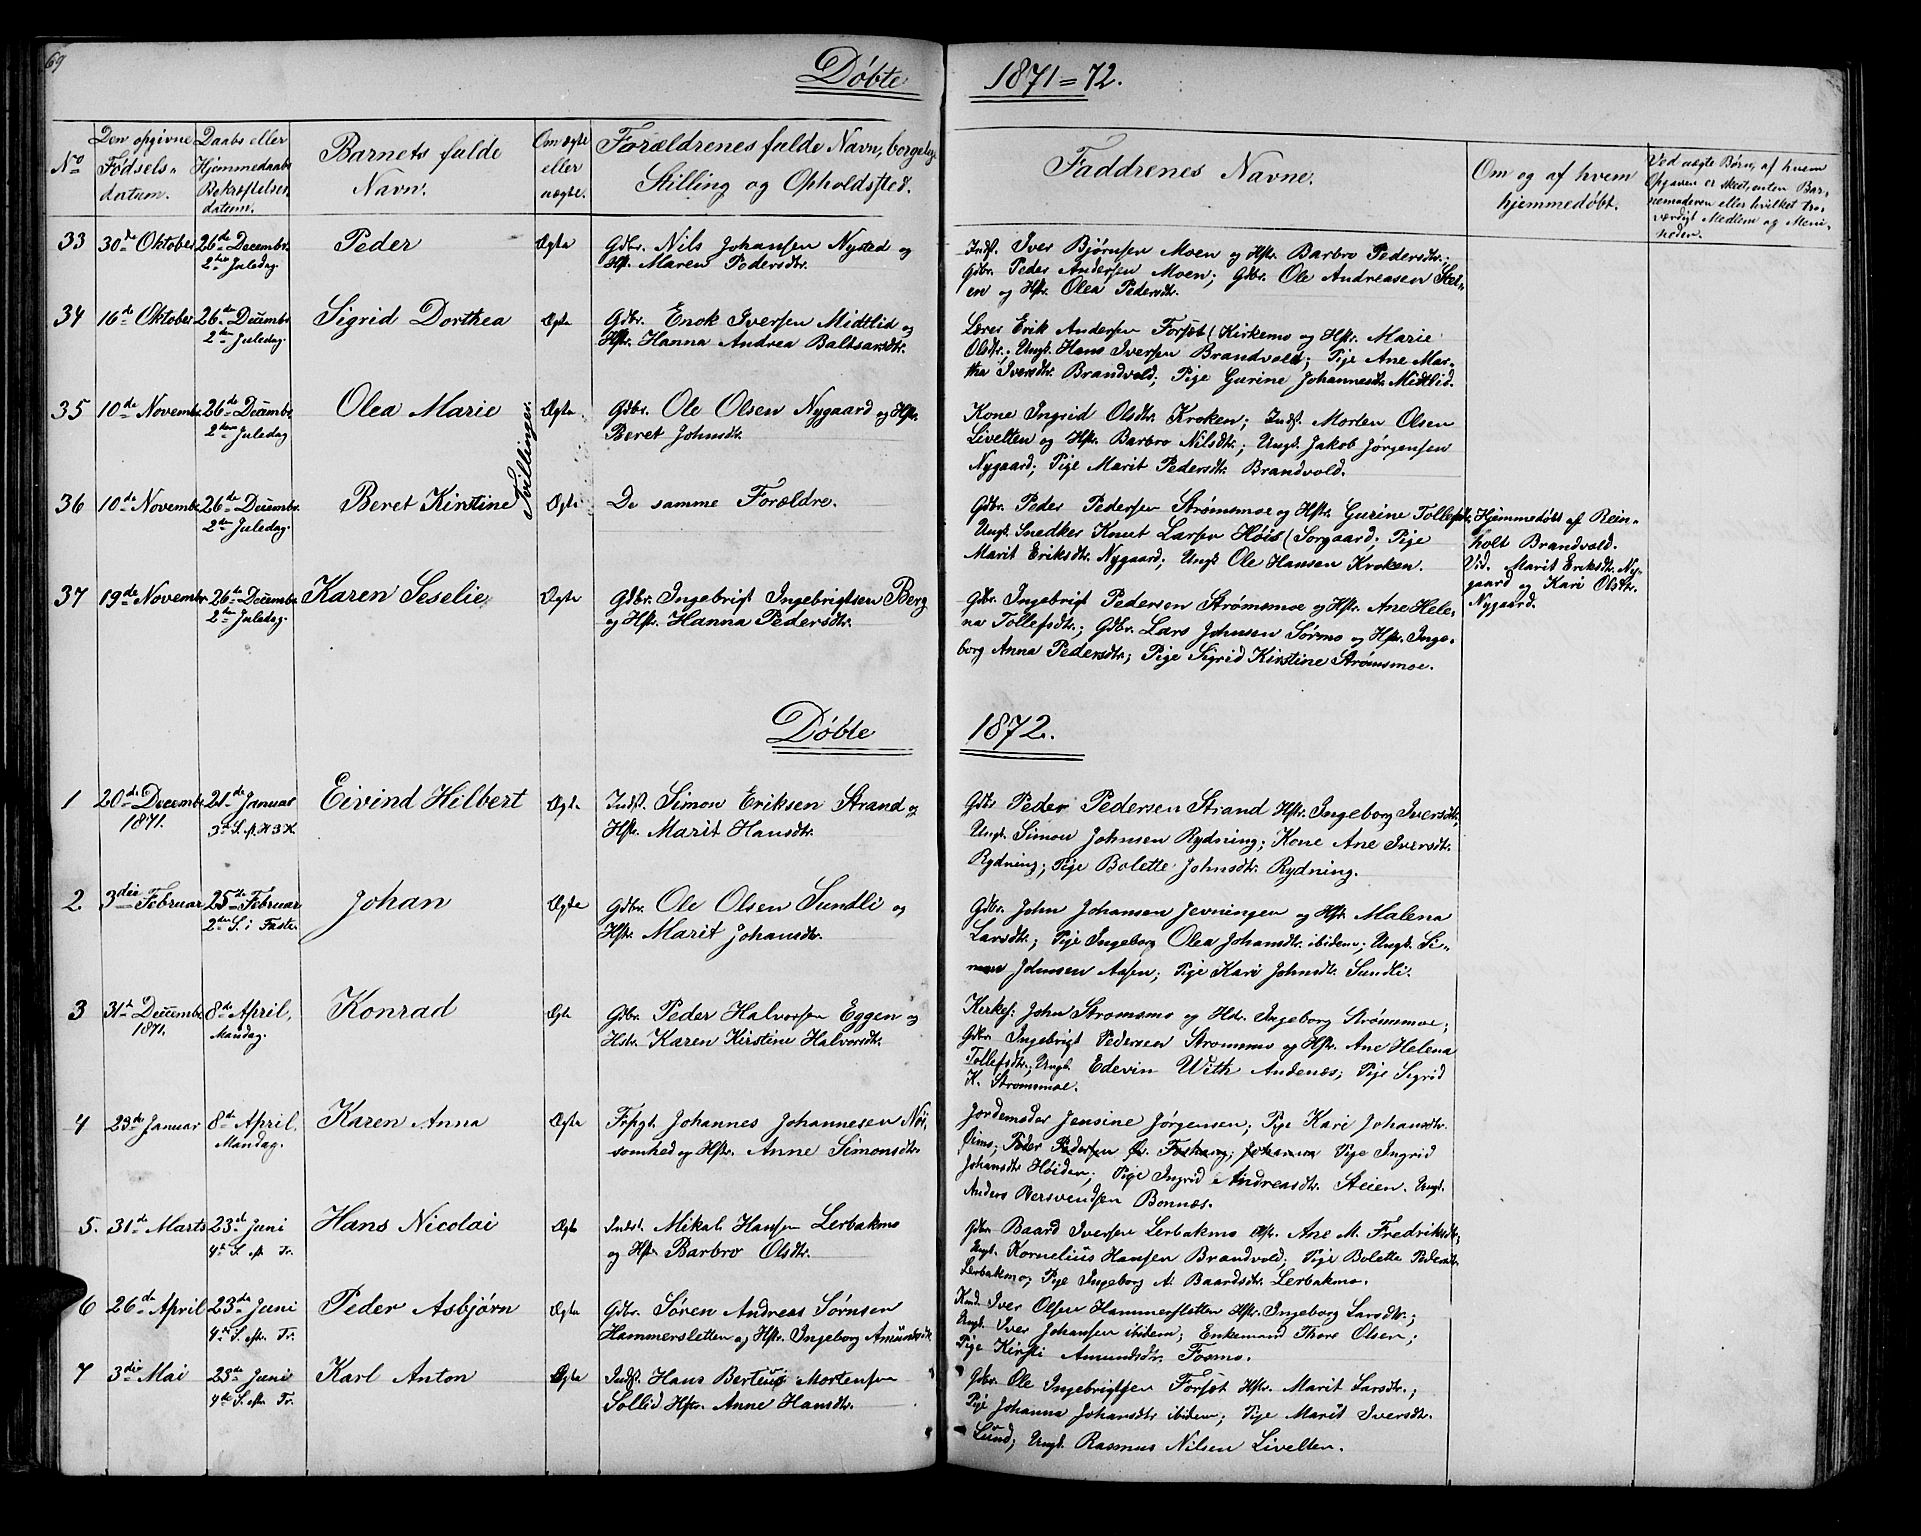 69
Døbte 1871=72.
No
Den opgivne Fødsels- datum.
Daabs eller Hjemmedaabs Bekræftelses datum.
Barnets fulde Navn.
Om ægte eller uægte.
Forældrenes fulde Navn, borgelige Stilling og Opholdsted.
Faddrenes Navne.
Om og af hvem hjemmedøbt.
Ved uægte Børn, af hvem Opgaven er skeet, enten Barnemoderen eller hvilket troværdigt Medlem og Menigheden.
33 30de Oktober 26de Decembr. Peder Ægte Gdbr. Nils Johansen Nysted og
2den Juledag. Hst. Maren Pedersdtr.
Indst. Iver Bjørnsen Moen og Hstr. Barbro Pedersdtr.;
Gdbr. Peder Andersen Moen; Gdbr. Ole Andreasen
en og Hstr. Olea Pedersdtr.
34 16de Oktober 26de Decembr. Sigrid Dorthea Ægte Gdbr. Enok Iversen Midtlid og
2den Juledag. Hstr. Hanna Andrea Baltsarsdtr.
Lærer Erik Andersen Forsøt (Kirkemo og Hstr. Marie
Olsdtr., Ungk. Hans Iversen Brandvold; Pige Ane Mar-
tha Iversdtr. Brandvold; Pige Gurine Johannesdtr. Midtlid.
35 10de Novembr. 26de Decembr. Olea Marie Ægte Gdbr. Ole Olsen Nygaard og Hstr.
2den Juledag Beret Johnsdtr.
Tvillinger.
Kone Ingrid Olsdtr. Kroken; Indst. Morten Olsen
Livelten og Hstr. Barbro Nilsdtr.; Ungk. Jakob Jørgensen
Nygaard; Pige Marit Pedersdtr. Brandvold.
36 10de Novembr. 26de Decembr. Beret Kirstine Ægte De samme Forældre.
2den Juledag.
Gdbr. Peder Pedersen Strømsmoe og Hstr. Gurine Tollefsdtr.
Ungk. Snedker Knut Larsen Høis (Sorgaard; Pige
Marit Eriksdtr. Nygaard; Ungk Ole Hansen Kroken.
Hjemmedøbt af Rein-
holt Brandvold.
Vid. Marit Eriksdtr. Ny-
gaard og Kari Olsdtr.
Nygaard.
37 19de Novembr. 26de Decembr. Karen Seselie Ægte Gdbr. Ingebrigt Ingebrigtsen Berg
2den Juledag. og Hstr. Hanna Pedersdtr.
Gdbr. Ingebrigt Pedersen Strømsmoe og Hstr. Ane Hele-
na Tollefsdtr.; Gdbr. Lars Johnsen Sørmo og Hstr. Inge-
borg Anna Pedersdtr; Pige Sigrid Kirstine Strømsmoe.
Døbte 1872.
1 20de Decembr. 21de Januar Eivind Hilbert Ægte Indst. Simon Eriksen Strand og
1871. 3die S. f. H 3 K. Hstr. Marit Hansdtr.
Gdbr Peder Pedersen Strand Hstr. Ingeborg Iversdtr;
Ungk. Simon Johnsen Rydning; Kone Ane Iversdtr.
Rydning; Pige Bolette Johnsdtr. Rydning.
2. 3die Februar 25de Februar Johan Ægte Gdbr. Ole Olsen Sundli og
2den S. i Faste. Hstr. Marit Johansdtr.
Gdbr. John Johansen Jevningen og Hstr Malena
Larsdtr; Pige Ingeborg Olea Johansdtr. ibidem; Ungk. Si-
mon Johnsen Aasen; Pige Kari Johnsdtr. Sundli.
3 31te Decembr. 8de April, Konrad Ægte Gdbr. Peder Halvorsen Eggen og
1871. Mandag. Hstr. Karen Kirstine Halvorsdtr.
Kirkes: John Strømsmo og Hstr. Ingeborg Strømsmoe;
Gdbr. Ingebrigt Pedersen Strømsmo og Hstr. Ane Helena
Tollefsdtr; Ungk. Edevin With Andenæs; Pige Sigrid
K. Strømsmoe.
4 29de Januar 8de April. Karen Anna Ægte Frpgt. Johannes Johannesen Nøi-
Mandag. somhed og Hstr. Anne Simonsdtr.
Jordemoder Jensine Jørgensen; Pige Kari Johansdtr.
Øimo; Peder Pedersen Pige Ingrid
Johansdtr Høiden; Pige Ingrid Andreasdtr. Steien. Ungk.
Anders Bersvendsen Bonnæs.
5. 31te Marts 23de Juni Hans Nicolai Ægte Indst. Mikal Hansen Lerbakmo
4de S. eft. Tr. og Hstr Barbro Olsdtr.
Gdbr. Baard Iversen Lerbakmo Hstr. Ane M. Fredriksdtr;
Ungk. Kornelius Hansen Brandvold; Pige Bolette Pedersdtr
Lerbakmo, Pige Ingeborg A. Baardsdtr. Lerbakmo.
6 26de April 23de Juni Peder Asbjørn Ægte Gdbr. Søren Andreas Sørnsen
4de S. eftr. Tr. Hammersletten og Hstr. Ingeborg Amundsdtr
Iver Olsen Hammersletten Hstr. Ingeborg Larsdtr.;
Ungk. Iver Johansen ibidem; Enkemand Thore Olsen;
Pige Kirsti Amundsdtr. Fosmo.
7 3die Mai 23de Juni Karl Anton Ægte Indst. Hans Berteus Mortensen
4de S. eftr. Tr. Sollid Hstr. Anne Hansdtr.
Gdbr. Ole Ingebrigtsen Forsøt Hstr. Marit Larsdtr.;
Pige Johanna Johansdtr ibidem; Pige Marit Iversdtr.
Lund; Ungk. Rasmus Nilsen Livelten.